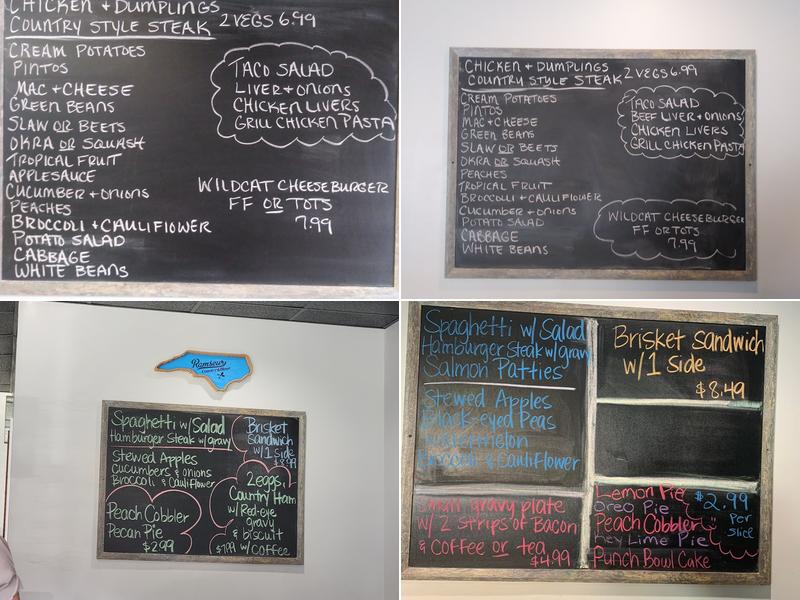 CHICKEN + DUMPLINGS
COUNTRY STYLE STEAK 2 VEGS 6.99
CREAM POTATOES
PINTOS
MAC + CHEESE
GREEN BEANS
SLAW OR BEETS
OKRA OR SQUASH
TROPICAL FRUIT
APPLESAUCE
CUCUMBER + ONIONS
PEACHES
BROCCOLI + CAULIFLOWER
POTATO SALAD
CABBAGE
WHITE BEANS
TACO SALAD
LIVER + ONIONS
CHICKEN LIVERS
GRILL CHICKEN PASTA
WILDCAT CHEESEBURGER
FF OR TOTS
7.99
CHICKEN + DUMPLINGS
COUNTRY STYLE STEAK 2 VEGS 6.99
CREAM POTATOES
PINTOS
MAC + CHEESE
GREEN BEANS
SLAW OR BEETS
OKRA OR SQUASH
PEACHES
TROPICAL FRUIT
BROCCOLI + CAULIFLOWER
CUCUMBER + ONIONS
POTATO SALAD
CABBAGE
WHITE BEANS
TACO SALAD
BEEF LIVER + ONIONS
CHICKEN LIVERS
GRILL CHICKEN PASTA
WILDCAT CHEESEBURGER
FF OR TOTS
7.99
Ramseur
Spaghetti w/ Salad
Hamburger Steak w/ gravy
Stewed Apples
Cucumbers & Onions
Broccoli & Cauliflower
Peach Cobbler
Pecan Pie
$2.99
Brisket
Sandwich
w/ 1 side
$8.99
2 eggs,
Country Ham
w/ Red-eye
gravy
& biscuit
$7.99 w/ coffee
Spaghetti w/ Salad
Hamburger Steak w/ grav
Salmon Patties
Stewed Apples
Black-eyed Peas
Watermelon
Broccoli & Cauliflower
Small gravy plate
w/ 2 strips of Bacon
& Coffee or tea
$4.99
Brisket Sandwich
w/ 1 side
$8.49
Lemon Pie
Oreo Pie
Peach Cobbler
Key Lime Pie
Punch Bowl Cake
$2.99
per
slice